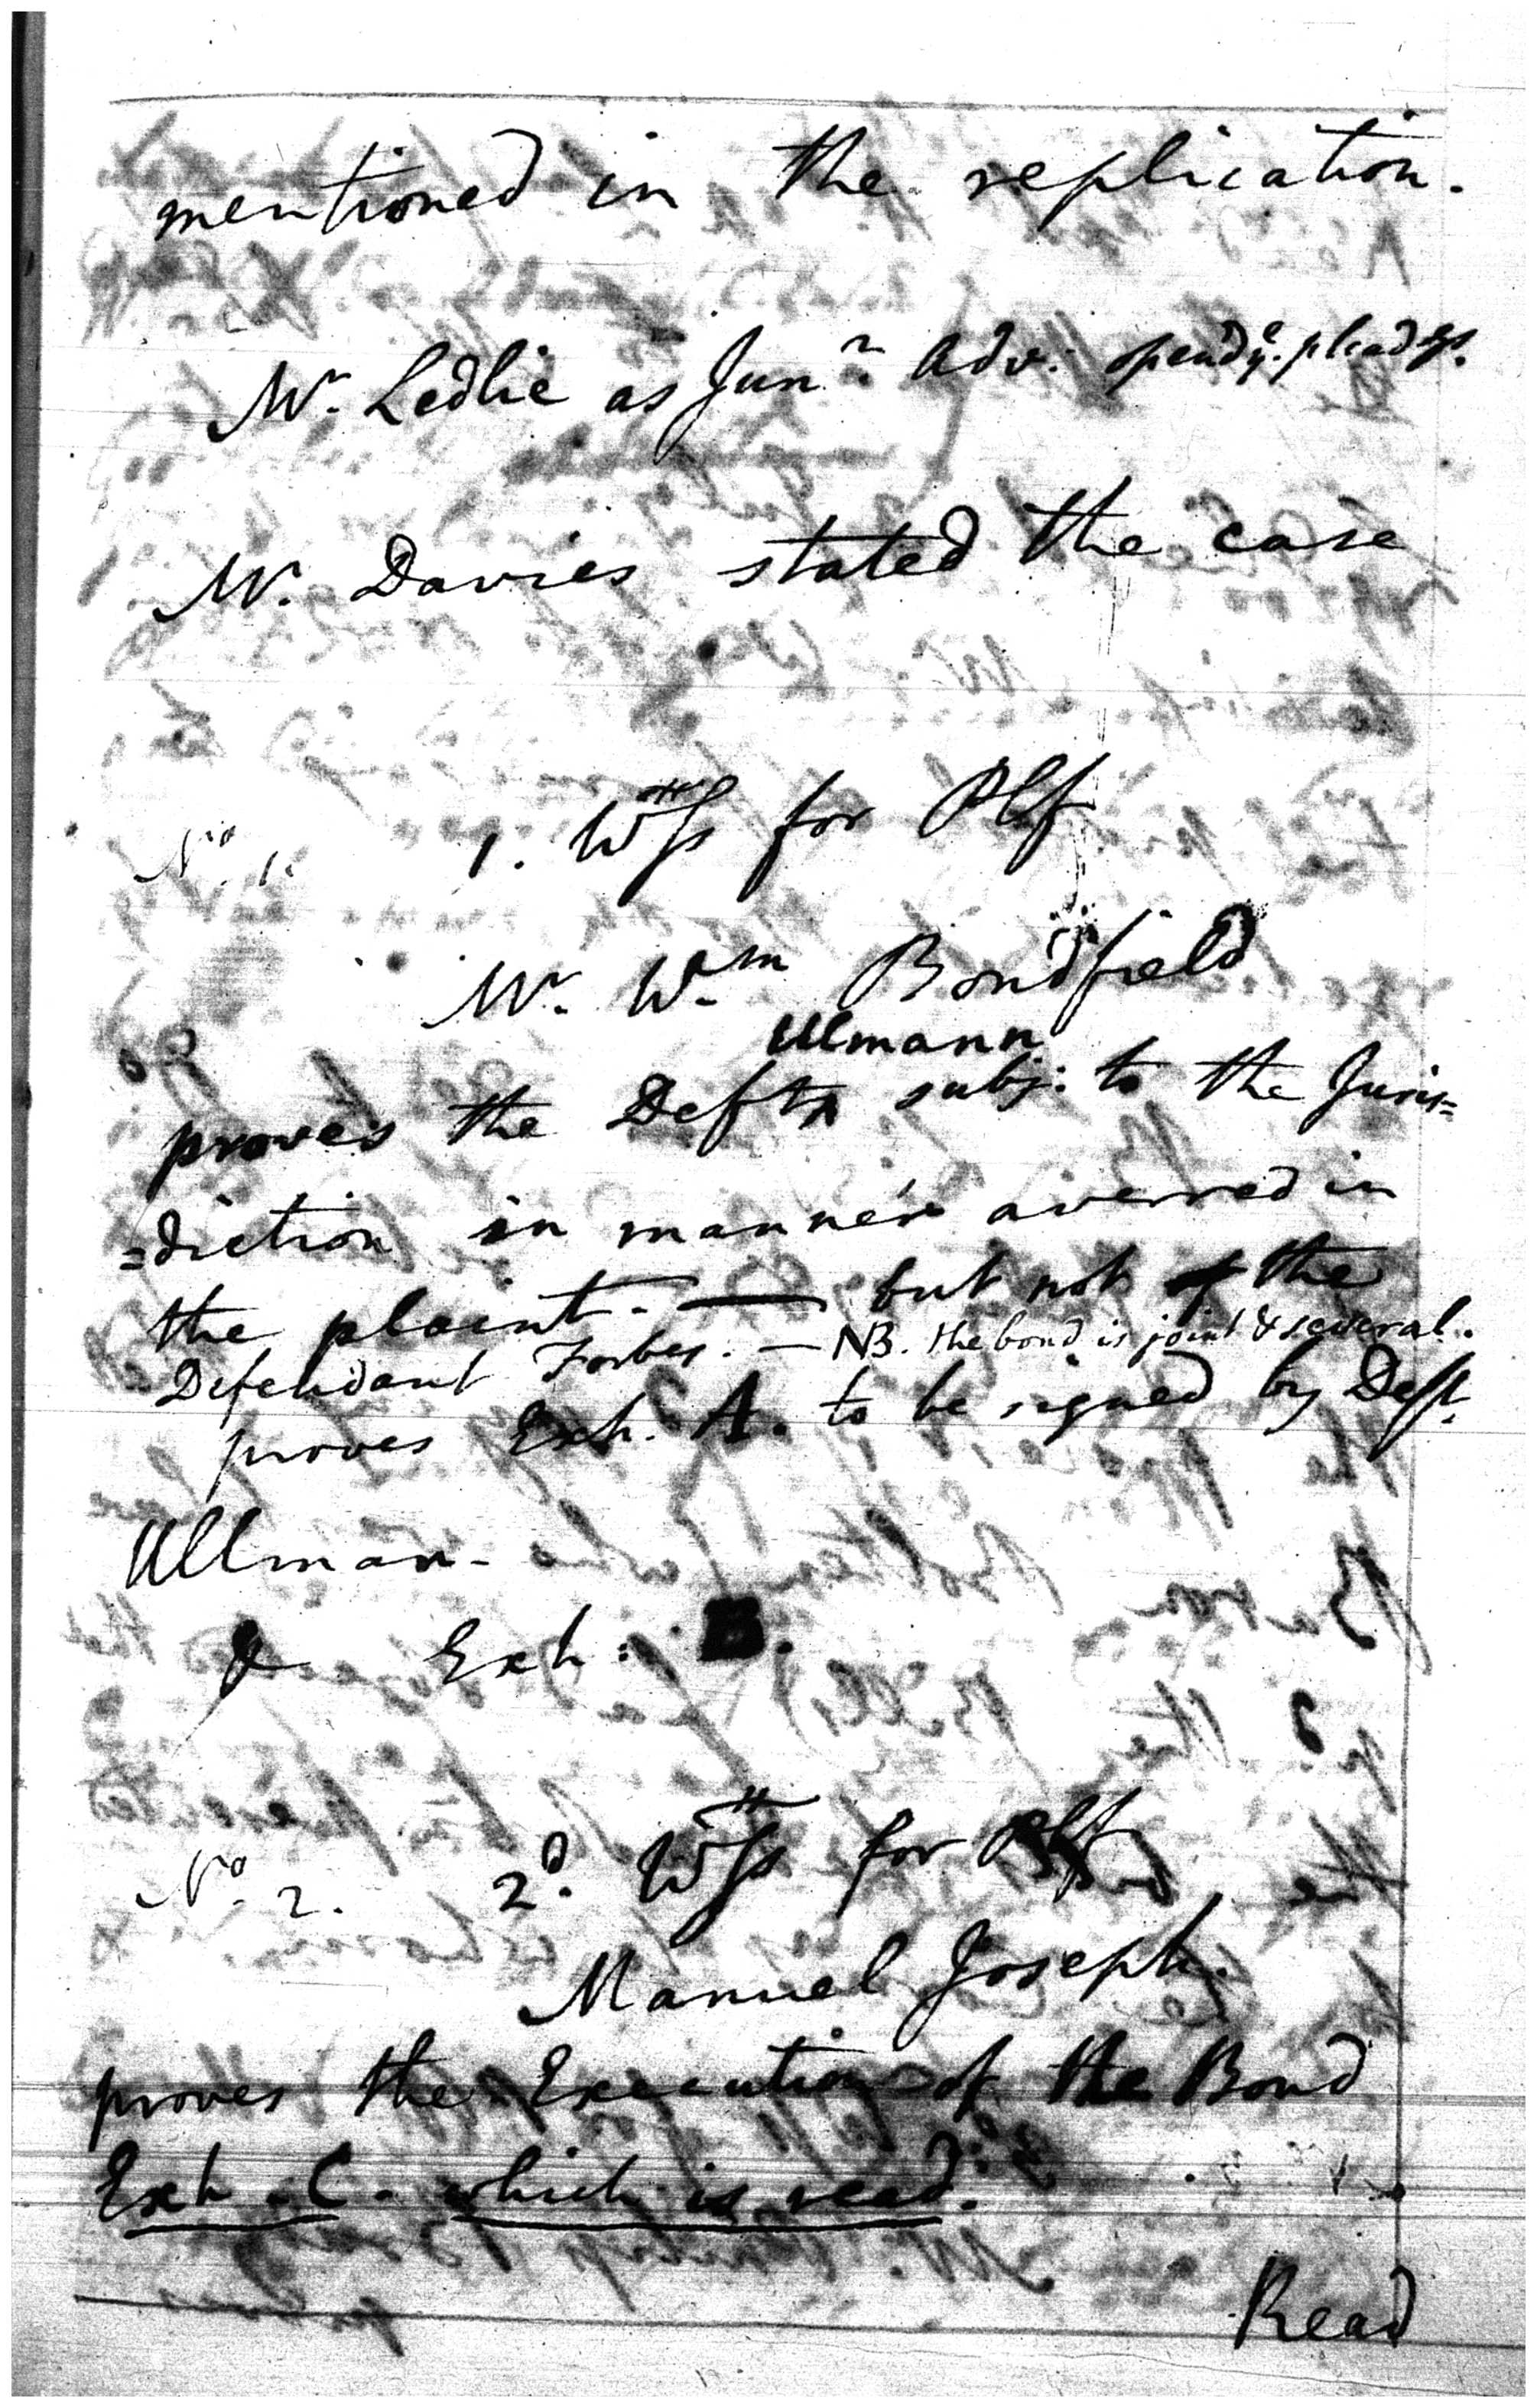 mentioned in the replication.
Mr. Ledlie as Junr. Adv: opend ye. pleadgs.
Mr. Davies stated the case
No. 1. 1. Wtss for Plf
Mr. Wm. Bondfield
Ulmann
proves the Deft^ subj: to the Juris=
=diction in manner averred in
the plaint. — but not of the
Defendant Forbes. — NB. the bond is joint & several.
proves Exh. A. to be signed by Deft.
Ullman-
& Exh: B.
No. 2. 2d. Wtss for Plf
Manuel Joseph.
proves the Execution of the Bond
Exh. C. which is read.
Read